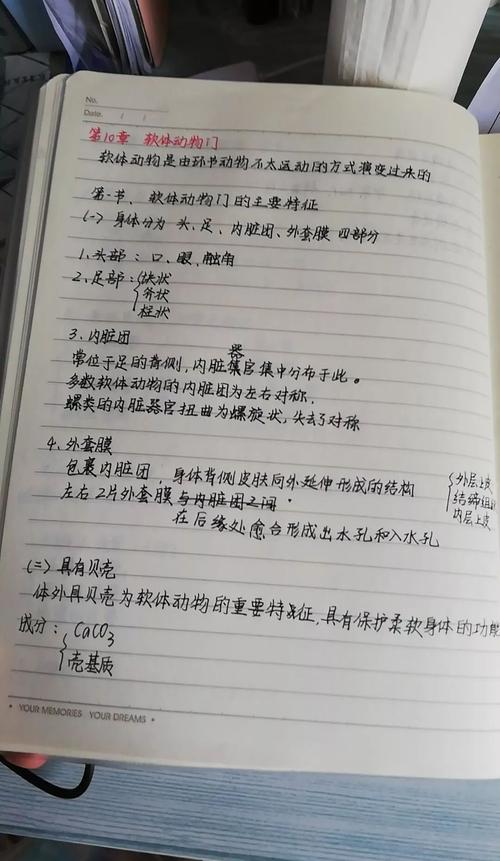 No.
Date. / /
第10章 软体动物门
软体动物是由环节动物不太运动的方式演变过来的
第一节、软体动物门的主要特征
(一) 身体分为 头、足、内脏团、外套膜 四部分
1、头部:口、眼、触角
2、足部:块状
斧状
柱状
3、内脏团
常位于足的背侧,内脏器官集中分布于此。
多数软体动物的内脏团为左右对称,
螺类的内脏器官扭曲为螺旋状,失去了对称
4、外套膜
包裹内脏团,身体背侧皮肤向外延伸形成的结构
外层上皮
结缔组
内层上皮
左右2片外套膜与内脏团之间
在后缘处愈合形成出水孔和入水孔
(二) 具有贝壳
体外具贝壳为软体动物的重要特征,具有保护柔软身体的功能
成分:CaCO3
壳基质
• YOUR MEMORIES YOUR DREAMS •